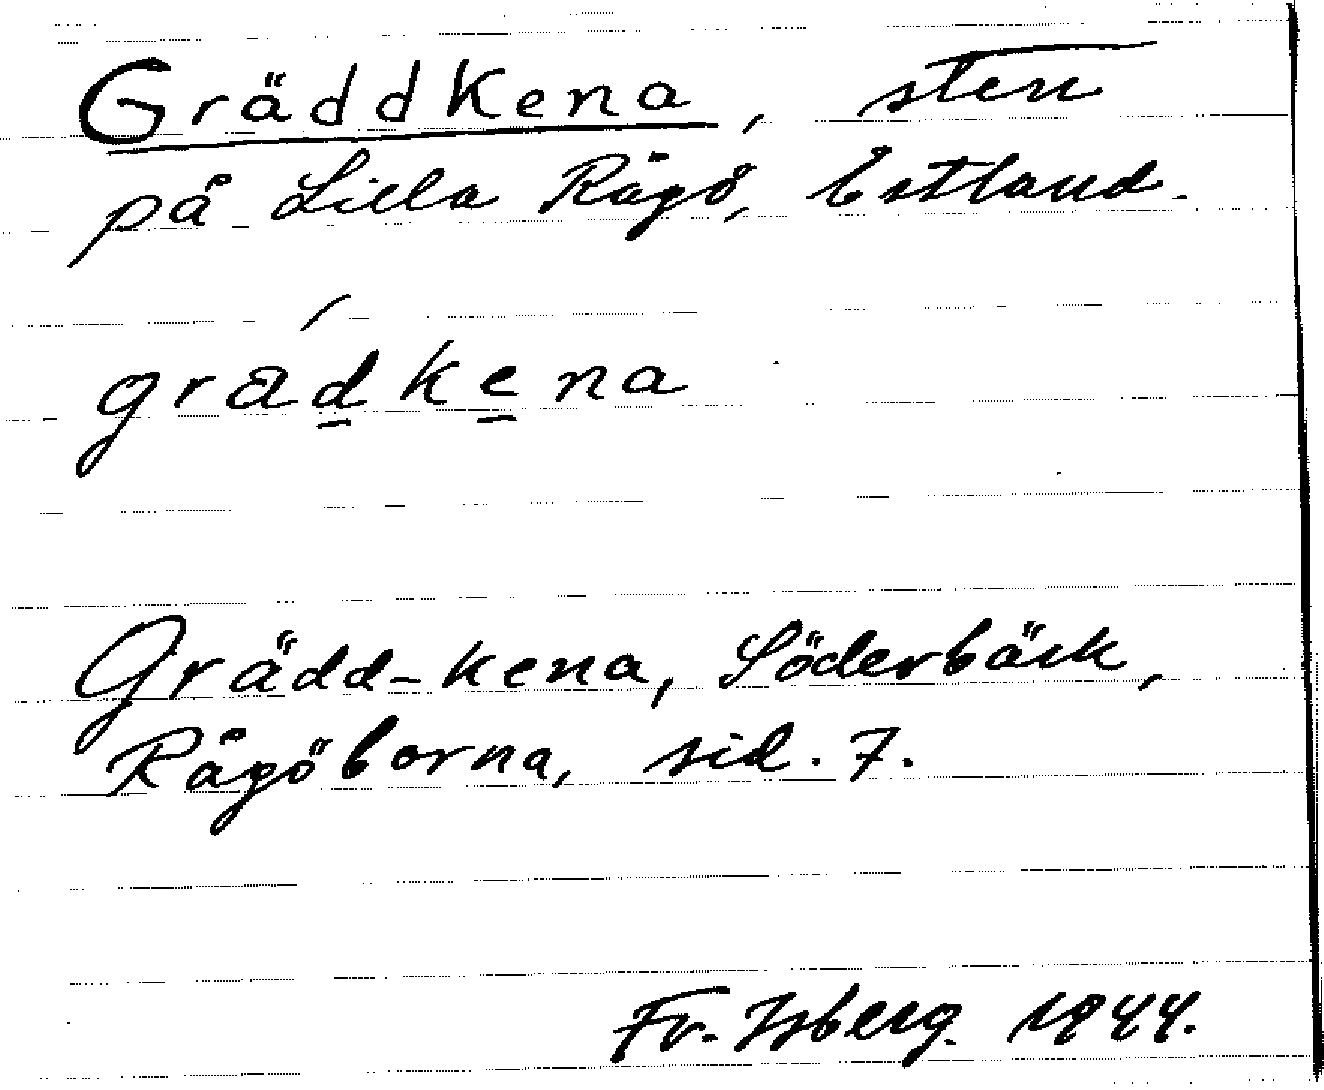 Gräddkena, sten
på Lilla Rågö, Estland.
grädkena
Grädd-kena, Söderbäck,
Rågöborna, sid. 7.
Fr. Isberg. 1944.